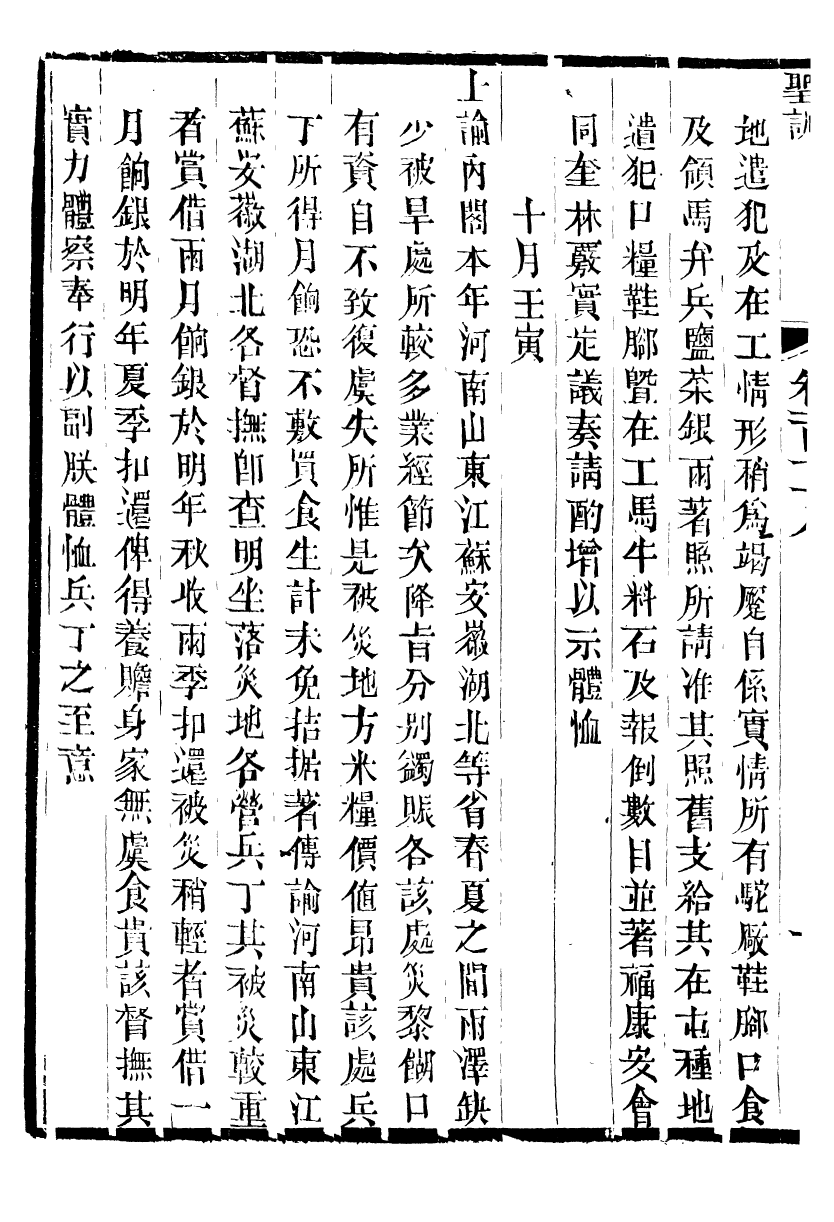 聖訓
卷二百十八
地遣犯及在工情形稍爲竭蹙自係實情所有駝廠鞋腳口食
及領馬弁兵鹽菜銀兩著照所請准其照舊支給其在屯種地
遣犯口糧鞋腳曁在工馬牛料石及報倒數目並著福康安會
同奎林覈實定議奏請酌增以示體恤
十月壬寅
上諭內閣本年河南山東江蘇安徽湖北等省春夏之間雨澤缺
少被旱處所較多業經節次降旨分別蠲賑各該處災黎餬口
有資自不致復虞失所惟是被災地方米糧價値昻貴該處兵
丁所得月餉恐不敷買食生計未免拮据著傳諭河南山東江
蘇安徽湖北各督撫卽查明坐落災地各營兵丁其被災較重
者賞借兩月餉銀於明年秋收兩季扣還被災稍輕者賞借一
月餉銀於明年夏季扣還俾得養贍身家無虞食貴該督撫其
實力體察奉行以副朕體恤兵丁之至意